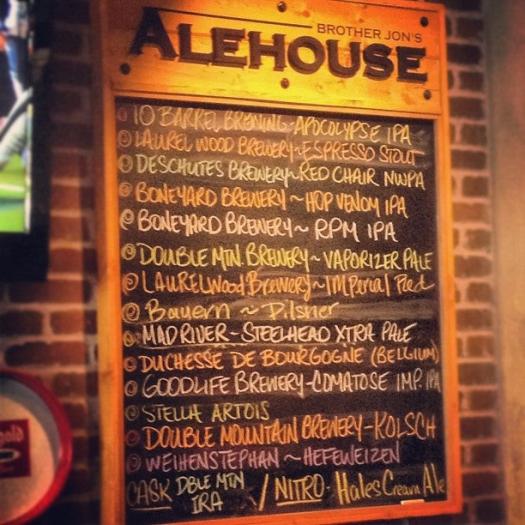 BROTHER JON'S
ALEHOUSE
10 BARREL BREWING-APOCOLYPSE IPA
LAUREL WOOD BREWERY~ESPRESSO STOUT
DESCHUTES BREWERY~RED CHAIR NWPA
BONEYARD BREWERY ~ HOP VENOM IPA
BONEYARD BREWERY ~ RPM IPA
DOUBLE MTN BREWERY ~ VAPORIZER PALE
LAURELWOOD BREWERY ~ IMPERIAL RED
Bayern ~ Pilsner
MAD RIVER - STEELHEAD XTRA PALE
DUCHESSE DE BOURGOGNE (BELGIUM)
GOODLIFE BREWERY-COMATOSE IMP. IPA
STELLA ARTOIS
DOUBLE MOUNTAIN BREWERY-KOLSCH
WEIHENSTEPHAN ~ HEFEWEIZEN
CASK DBLE MTN IRA / NITRO- Hales Cream Ale